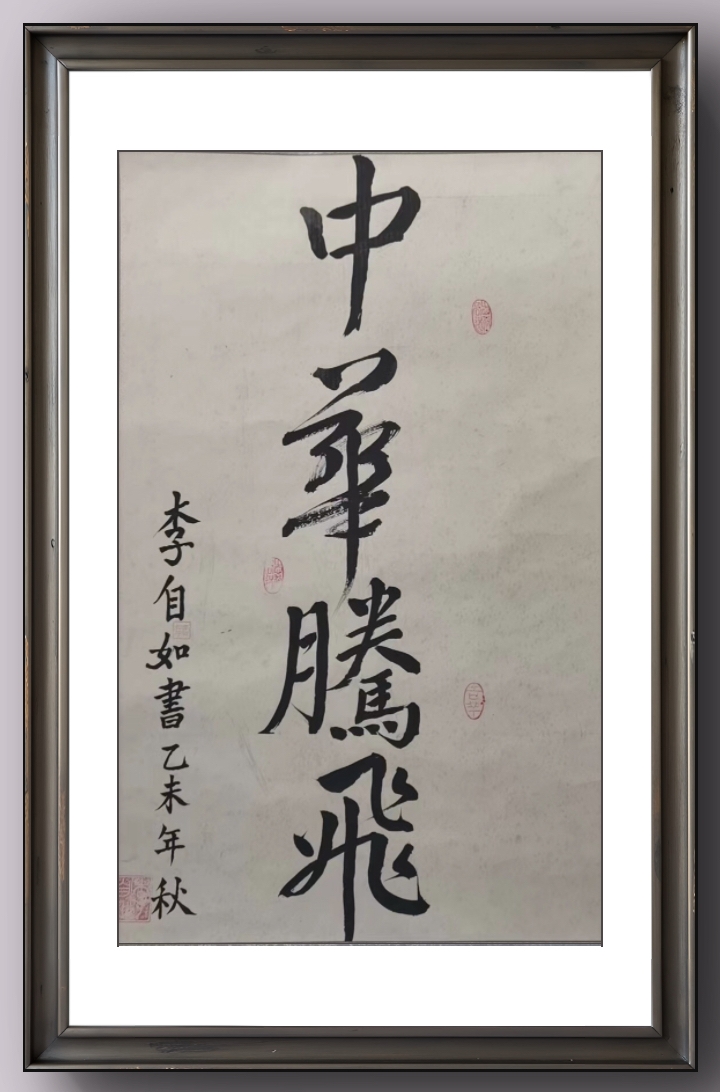 中華騰飛
李自如書乙未年秋